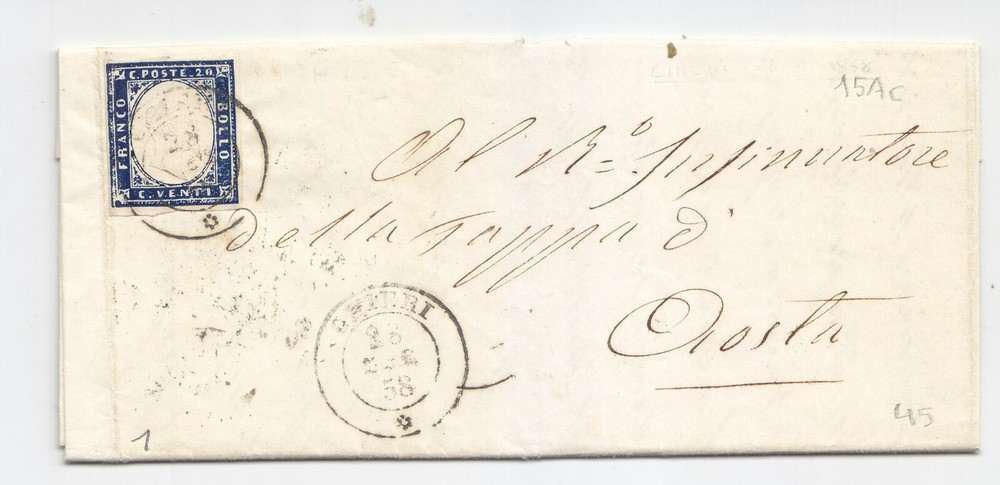 C. POSTE. 20
FRANCO
BOLLO
C. VENTI
15Ac
Al R.º Insinuatore
della Tappa d'
Aosta
58
45
1